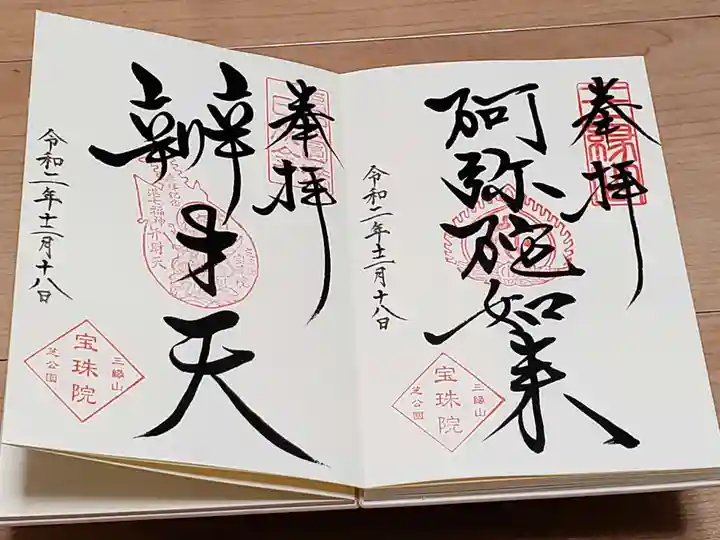 奉拝
阿弥陀如来
令和二年十二月十八日
三縁山
宝珠院
芝公園
奉拝
辨才天
令和二年十二月十八日
三縁山
宝珠院
芝公園